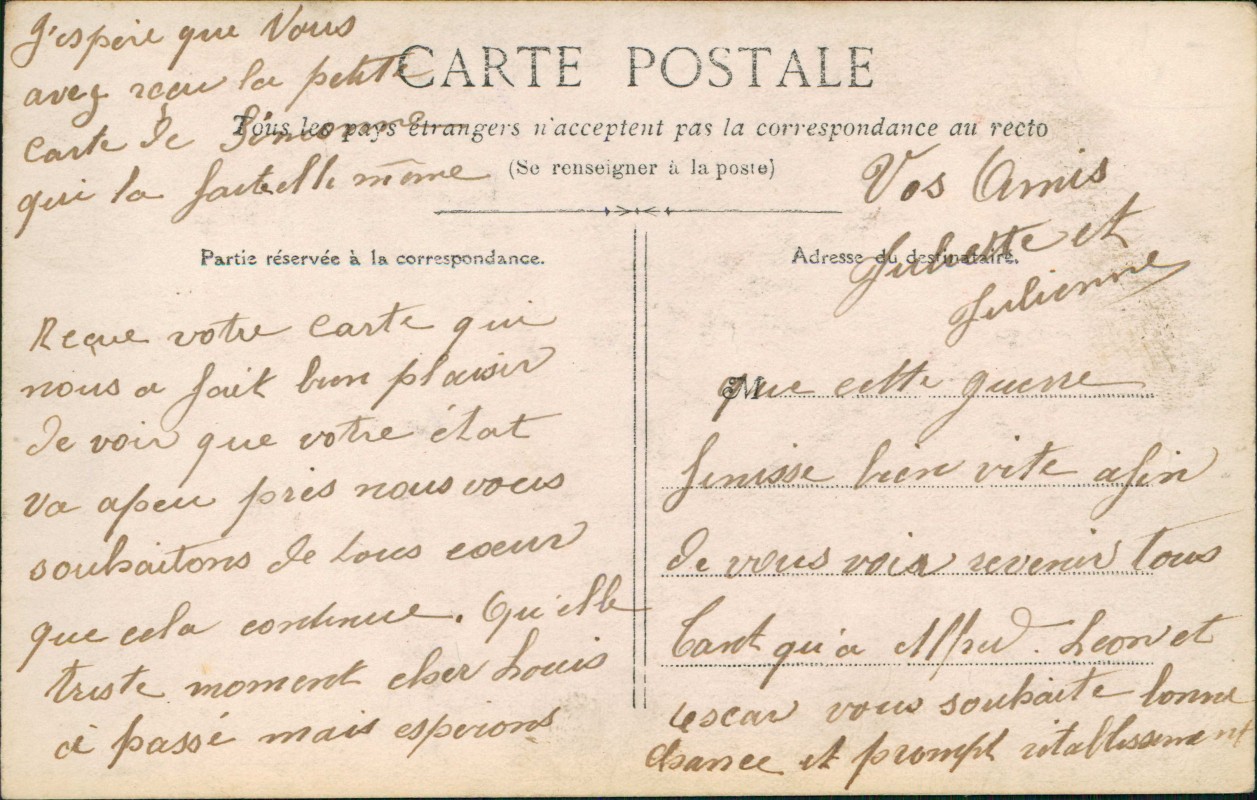 CARTE POSTALE
Tous les pays étrangers n'acceptent pas la correspondance au recto
(Se renseigner à la poste)
Partie réservée à la correspondance.
Adresse du destinataire.
Reçue votre carte qui
nous a fait bien plaisir
de voir que votre état
va apeu près nous vous
souhaitons de tous coeur
que cela continue. Qu'elle
triste moment cher Louis
à passé mais esperons
M
que cette guerre
finisse bien vite afin
de vous voir revenir tous
tant qu'a Alfred. Leon et
escar vous souhaite bonne
chance et prompt rétablissement
J'espère que Vous
avez reçu la petite
carte de Simonne
qui la fait elle même
Vos Amis
Juliette et
Julienne